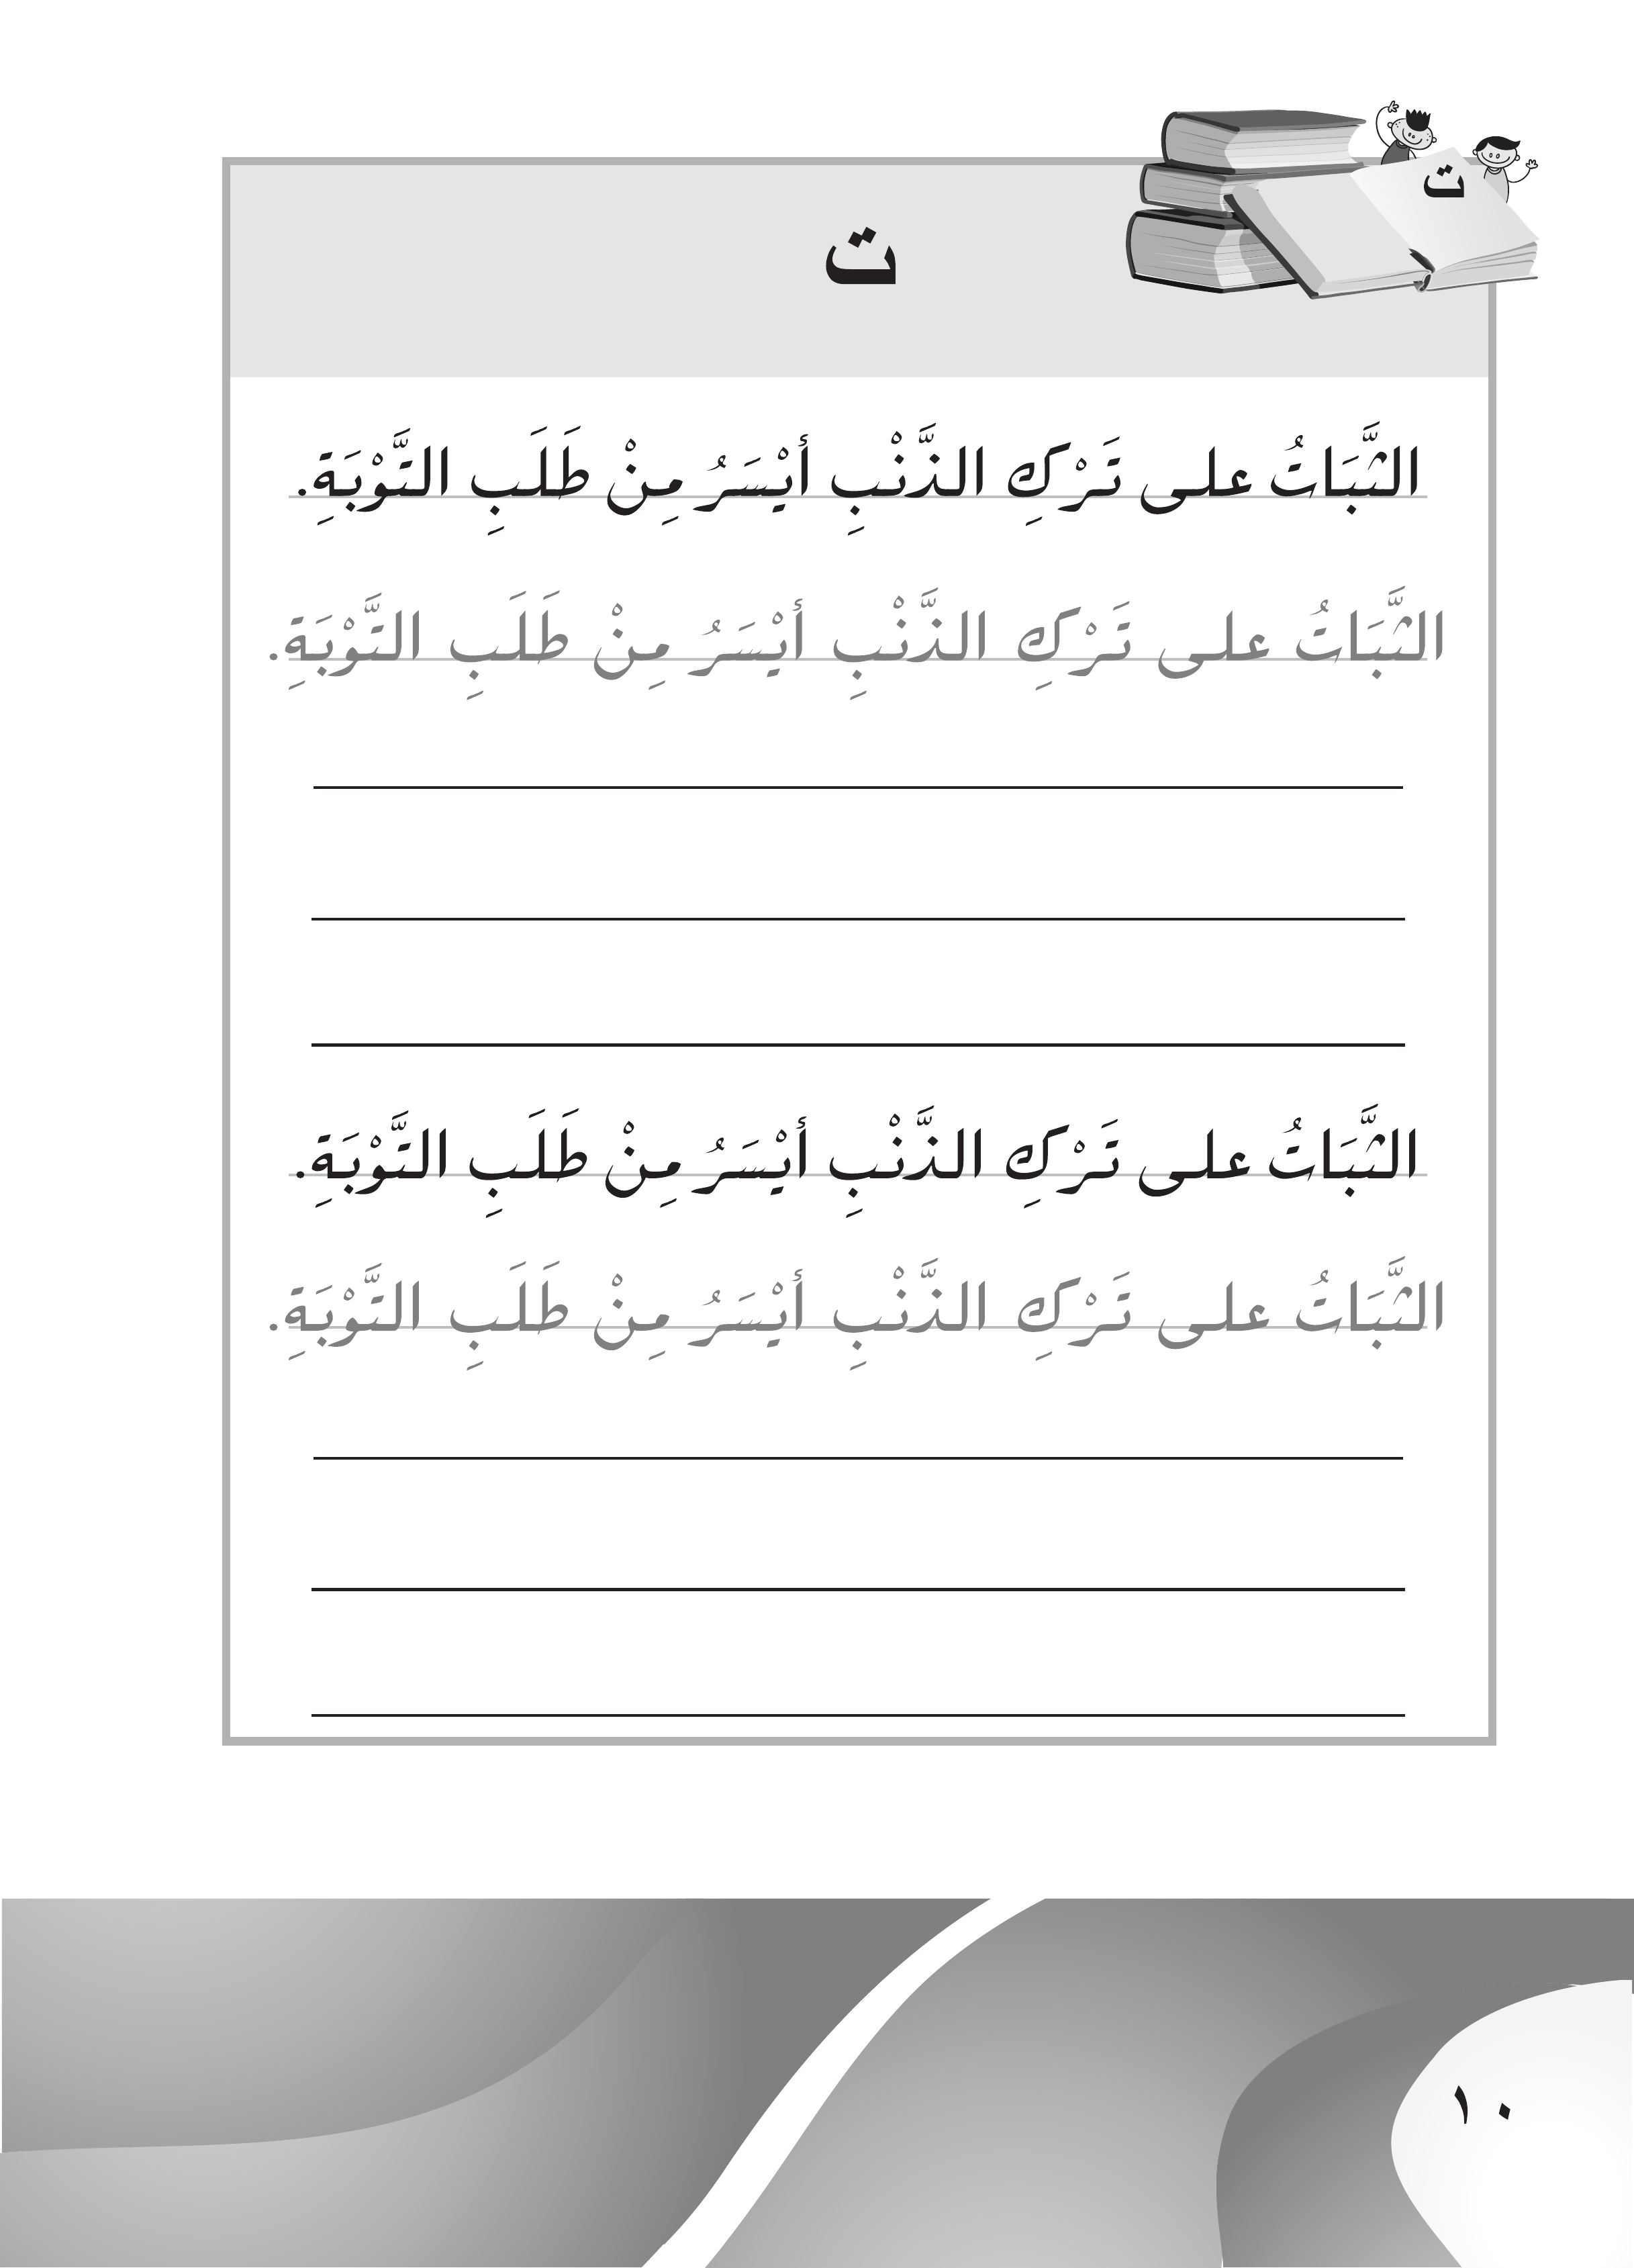 ت
ت
الثَّبَاتُ على تَرْكِ الذَّنْبِ أيْسَرُ مِنْ طَلَبِ التَّوْبَةِ.
الثَّبَاتُ على تَرْكِ الذَّنْبِ أيْسَرُ مِنْ طَلَبِ التَّوْبَةِ.
الثَّبَاتُ على تَرْكِ الذَّنْبِ أيْسَرُ مِنْ طَلَبِ التَّوْبَةِ.
الثَّبَاتُ على تَرْكِ الذَّنْبِ أيْسَرُ مِنْ طَلَبِ التَّوْبَةِ.
١٠